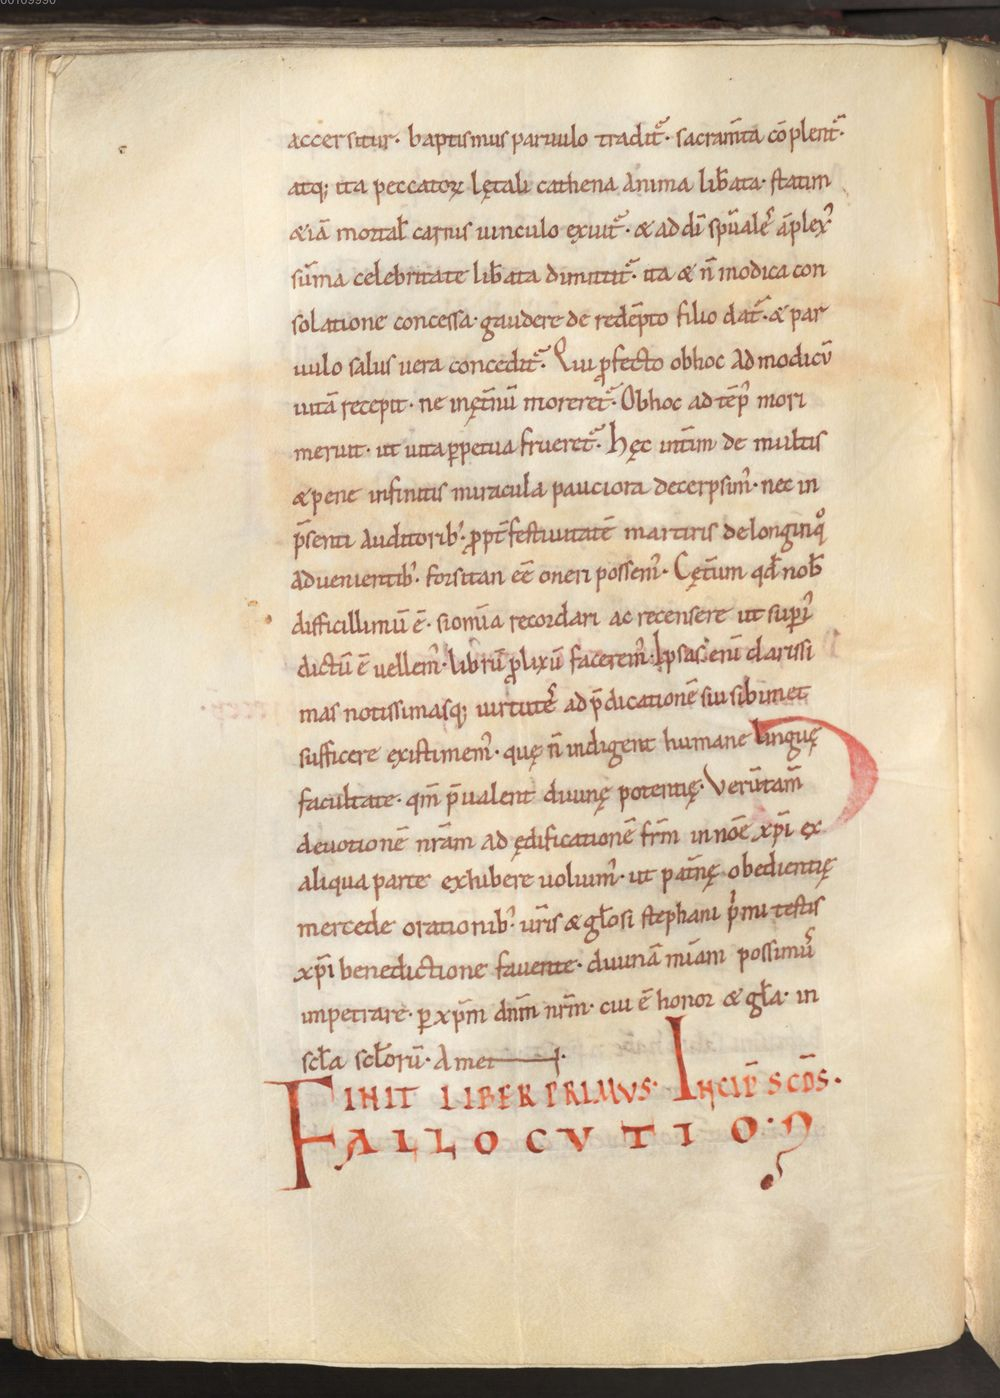 accersitur· baptismus paruulo tradit᷑· sacram̅ta co̅plent᷑·
atq; ita peccatoꝝ lętali cathena anima lib̅ata· statim
&ia̅ mortal̅ carnis uinculo exuit᷑· & ad dī spūale᷒ a̅plex᷒
su̅ma celebritate lib̅ata dimittit᷑· ita & n̅ modica con
solatione concessa· gaudere de rede̅pto filio dat᷑· & par
uulo salus uera concedit᷑· Qui ꝓfecto obhoc ad modicu̅
uita̅ recepit· ne inęt̅nu̅ moreret᷑· Obhoc ad te̅p᷒ mori
meruit· ut uita ꝑpetua frueret᷑· Hęc int̅im de multis
& pene infinitis miracula pauciora decerpsim᷒· nec in
p̅senti auditorib᷒· ꝓpt̅ festiuitate̅ martiris de longinq°
aduenientib᷒· forsitan ee̅ oneri possem᷒· Cęt̅um qd̅ nob̅
difficillimu̅ e̅· si om̅ia recordari ac recensere ut sup᷒i
dictu̅ e̅ uellem᷒· libru̅ ꝓlixu̅ facerem᷒· Ipsas eni̅ clarissi
mas notissimasq; uirtute᷒ ad p̅dicatione̅ sui sibimet
sufficere existimem᷒· quę n̅ indigent humane linguę
facultate· qm̅ p̅ualent diuinę potentię· Veru̅tam̅
deuotione̅ nr̅am ad ędificatione̅ fr̅m in no̅e xp̅i ex
aliqua parte exhibere uoluim᷒· ut pat̅nę obedientię
mercede orationib᷒· ur̅is & gl̅osi stephani p'mi testis
xp̅i benedictione fauente· diuina̅ mi̅am possimu᷒
impetrare· ꝑ xp̅m dn̅m nr̅m· cui e̅ honor & gl̅a· in
scl̅a scl̅oru̅· Amen·
FINIT LIBER PRIMVS· INCIP̅ SCD̅S·
ALLOCVTIO·